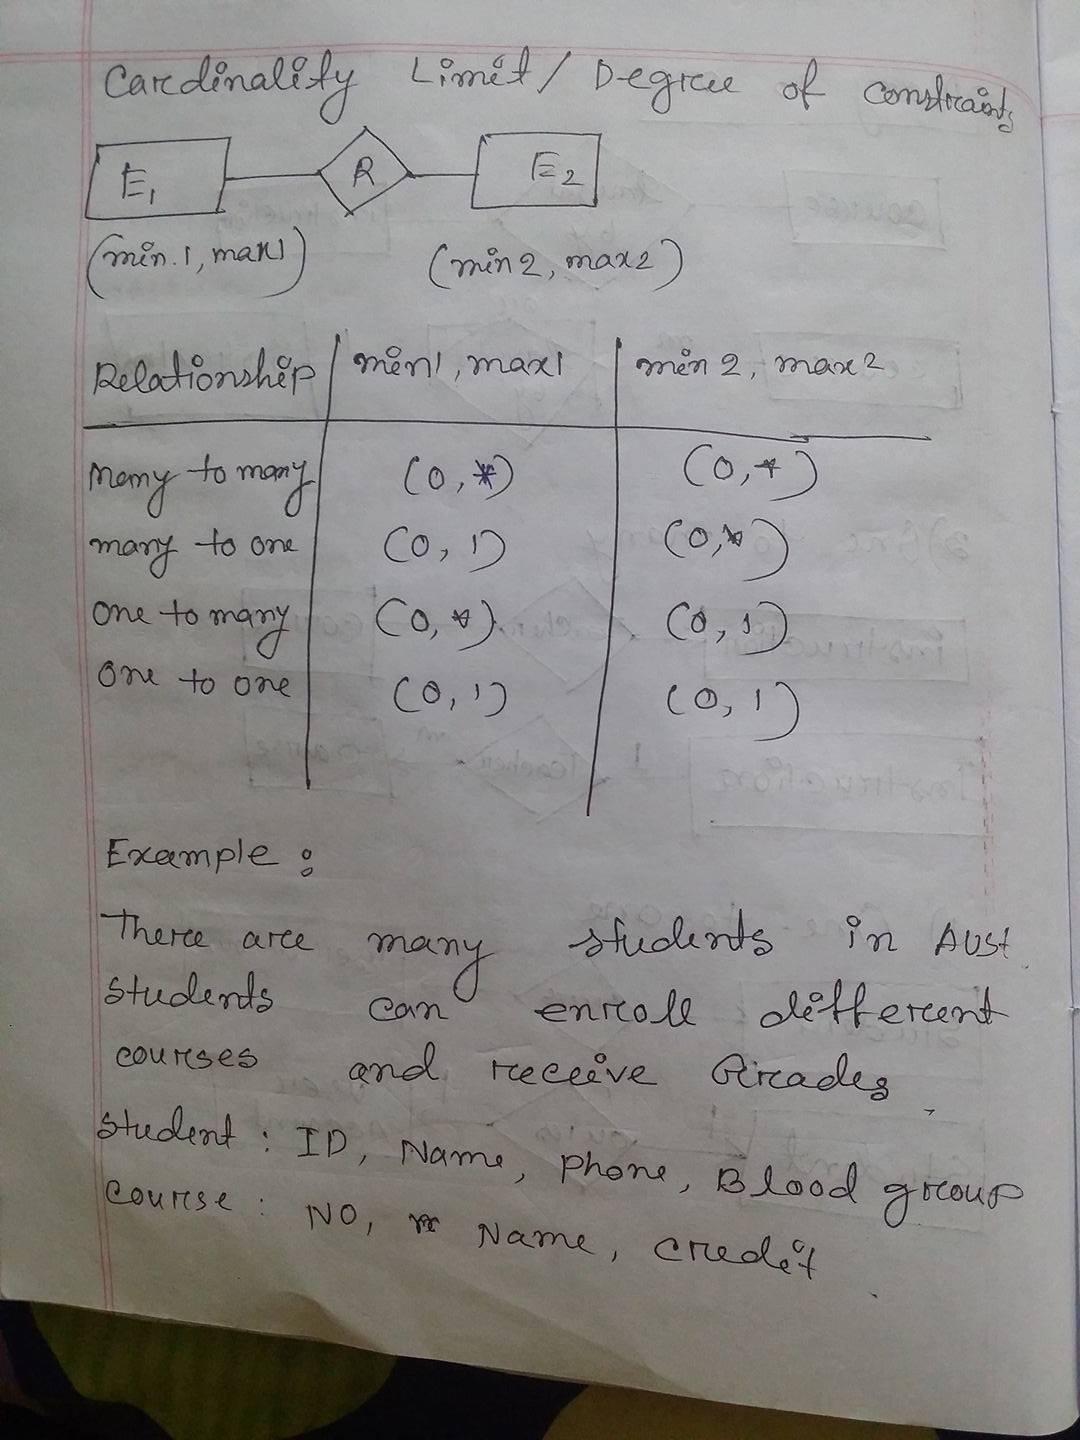 Cardinality Limit / Degree of constraints
E1 R E2
(min.1, max1) (min 2, max 2)
Relationship min1, max1 min 2, max 2
Many to many (0, *) (0, *)
many to one (0, 1) (0, *)
one to many (0, *) (0, 1)
one to one (0, 1) (0, 1)
Example :
There are many students in AUST.
students can enroll different
courses and receive Grades.
Student : ID, Name, Phone, Blood group
Course : NO, Name, credit